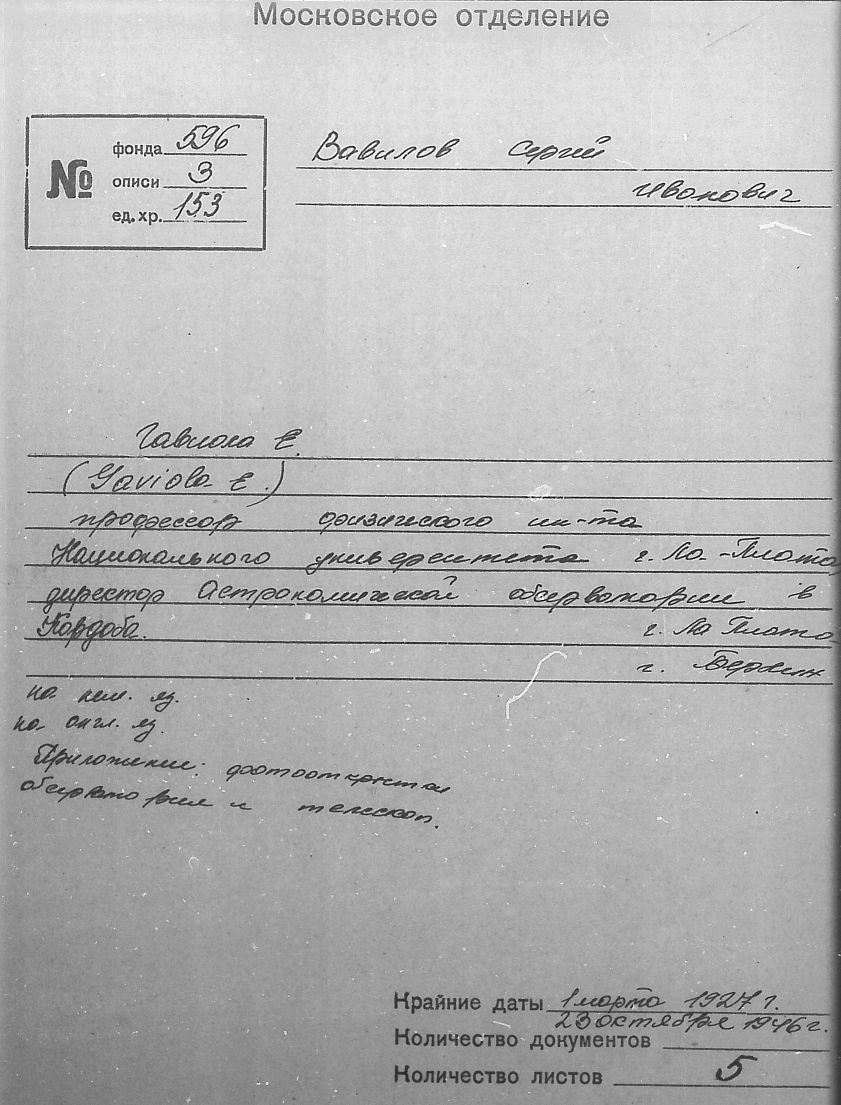 Московское отделение
№
фонда 596
описи 3
ед. хр. 153
Вавилов Сергей
Иванович
Гавиола Е.
(Gaviola E.)
профессор физического ин-та
Национального университета г. Ла-Плата,
директор Астрономической обсерватории в
Кордоба. г. Ла Плата
г. Берлин
на нем. яз.
на англ. яз.
Приложение: фотооткрытки
обсерватория и телескоп.
Крайние даты 1 марта 1927 г.
23 октября 1946 г.
Количество документов
Количество листов 5